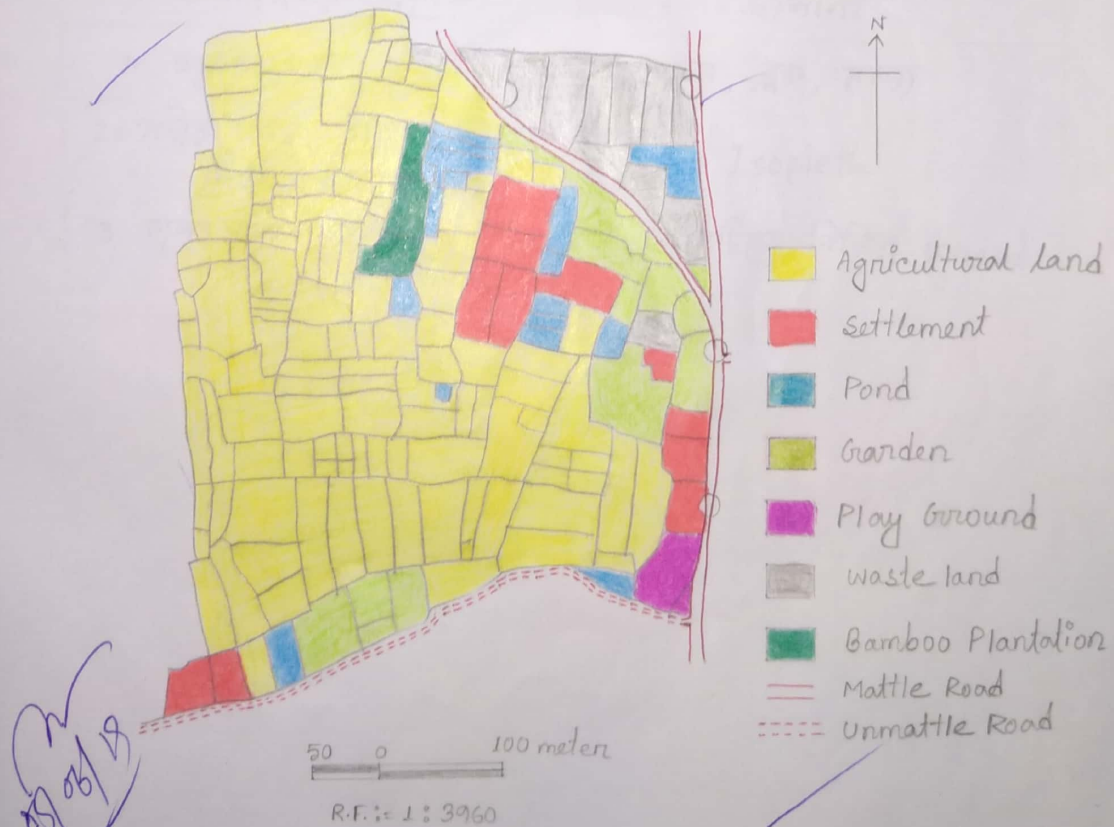 N
Agricultural land
Settlement
Pond
Garden
Play Ground
waste land
Bamboo Plantation
Mattle Road
Unmattle Road
50 0 100 meter
R.F. := 1 : 3960